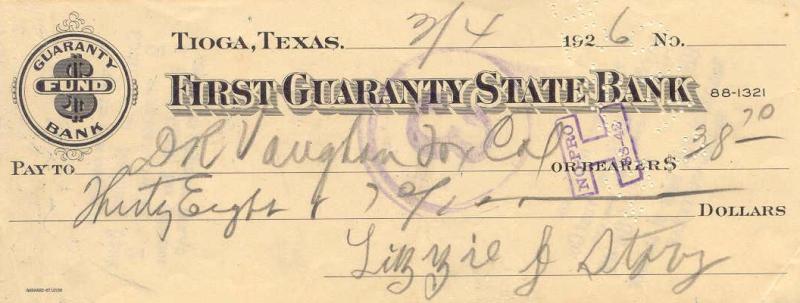 GUARANTY FUND BANK
TIOGA, TEXAS. 3/4 1926 No.
FIRST GUARANTY STATE BANK 88-1321
PAY TO D R Vaughan Tax Col OR BEARER $ 38 70
Thirty Eight & 70/100 DOLLARS
Lizzie J Story